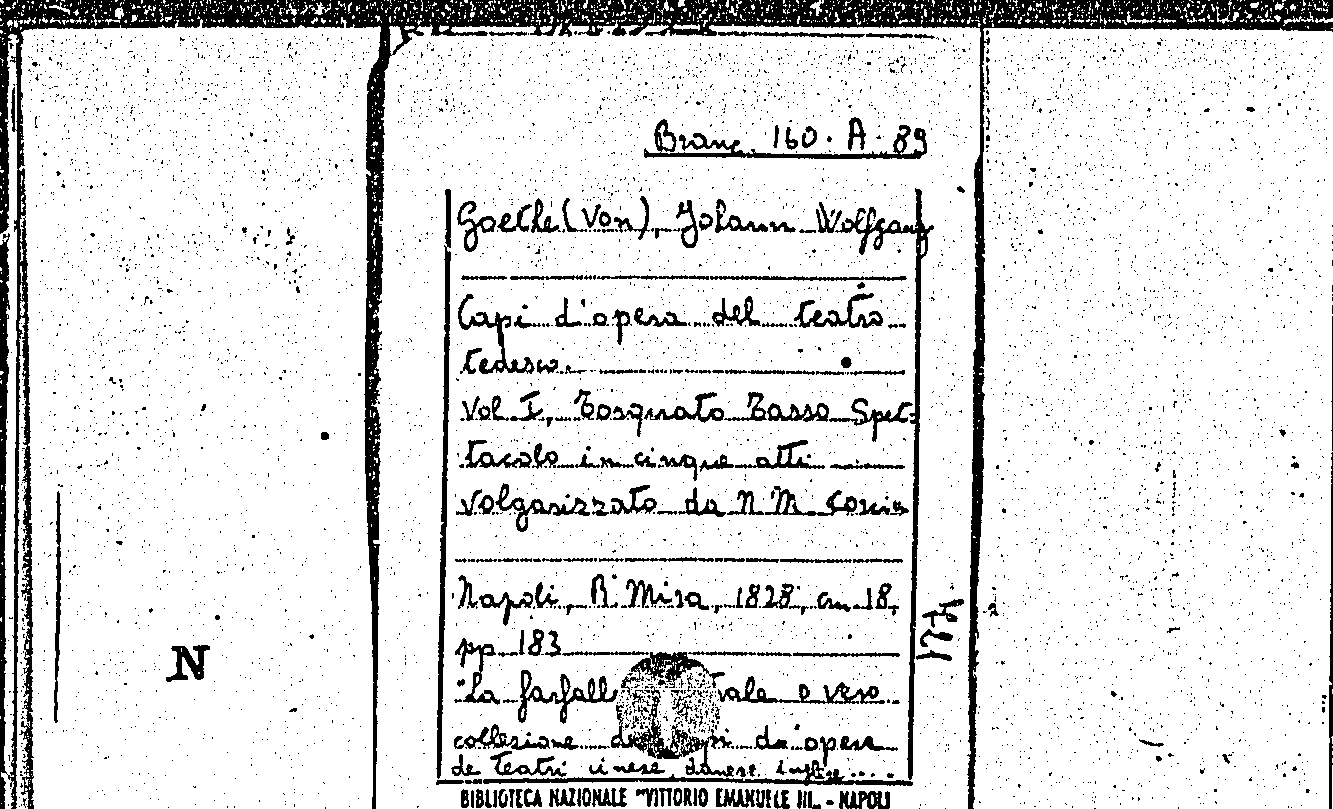 Branc. 160. A. 89
Goethe (Von), Johann Wolfgang
Capi d'opera del teatro
tedesco.
Vol I, Torquato Tasso Spet-
tacolo in cinque atti
volgarizzato da N M Corcia
Napoli, R. Mira, 1828, cm 18,
pp 183
"La farfall ale o vero
collezione di da'opera
de teatri cinese, danese inglese....
BIBLIOTECA NAZIONALE "VITTORIO EMANUELE III" - NAPOLI
N